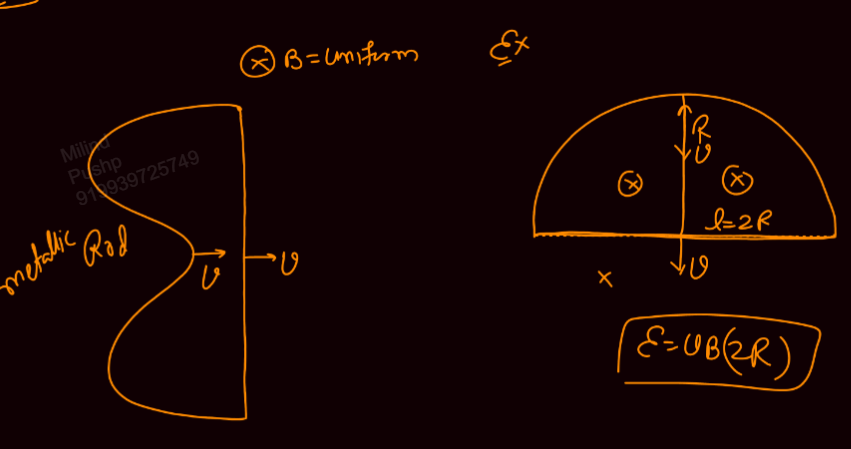 ⊗ B = uniform
Ex
Milind
Pushp
919939725749
metallic Rod
v
v
R
v
⊗
⊗
l=2R
v
x
ε = vB(2R)